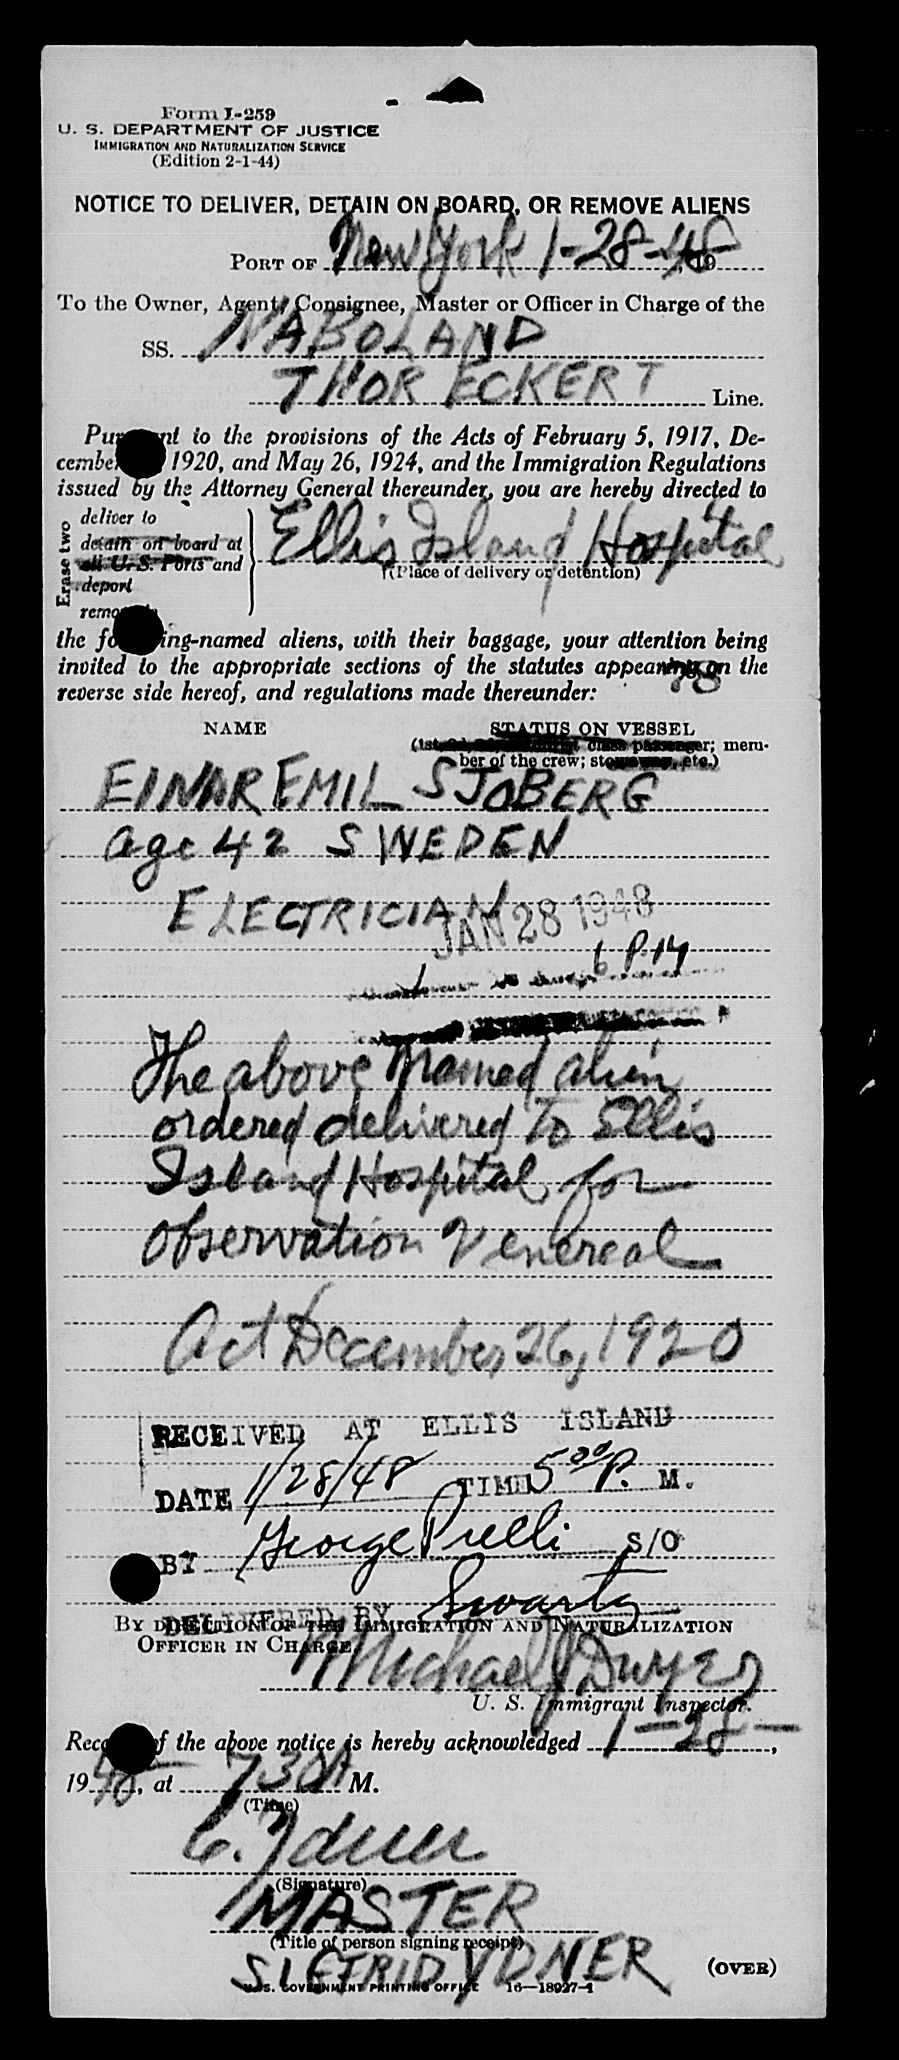 Form I-259
U. S. DEPARTMENT OF JUSTICE
IMMIGRATION AND NATURALIZATION SERVICE
(Edition 2-1-44)
NOTICE TO DELIVER, DETAIN ON BOARD, OR REMOVE ALIENS
PORT OF New York 1-28-48, 19
To the Owner, Agent, Consignee, Master or Officer in Charge of the
SS. NABOLAND
THOR ECKERT Line.
Pursuant to the provisions of the Acts of February 5, 1917, De-
cember 1920, and May 26, 1924, and the Immigration Regulations
issued by the Attorney General thereunder, you are hereby directed to
Erase two
deliver to
detain on board at
all U. S. Ports and
deport
remove
Ellis Island Hospital
(Place of delivery or detention)
the following-named aliens, with their baggage, your attention being
invited to the appropriate sections of the statutes appearing on the
reverse side hereof, and regulations made thereunder:
NAME STATUS ON VESSEL
class passenger; mem-
ber of the crew; etc.)
EINAR EMIL SJOBERG
age 42 SWEDEN
ELECTRICIAN
JAN 28 1948
6 P.M
The above named alien
ordered delivered To Ellis
Island Hospital for
Observation Venereal
Act December 26, 1920
RECEIVED AT ELLIS ISLAND
DATE 1/28/48 TIME 5 00 P. M.
BY George Prelli S/O
DELIVERED BY Swartz
BY DIRECTION OF THE IMMIGRATION AND NATURALIZATION
OFFICER IN CHARGE
Michael J Dwyer
U. S. Immigrant Inspector.
Receipt of the above notice is hereby acknowledged 1-28-,
1948, at 730A M.
(Time)
(Signature)
MASTER
(Title of person signing receipt)
SIGFRID YDNER
(OVER)
U.S. GOVERNMENT PRINTING OFFICE 16-18927-1